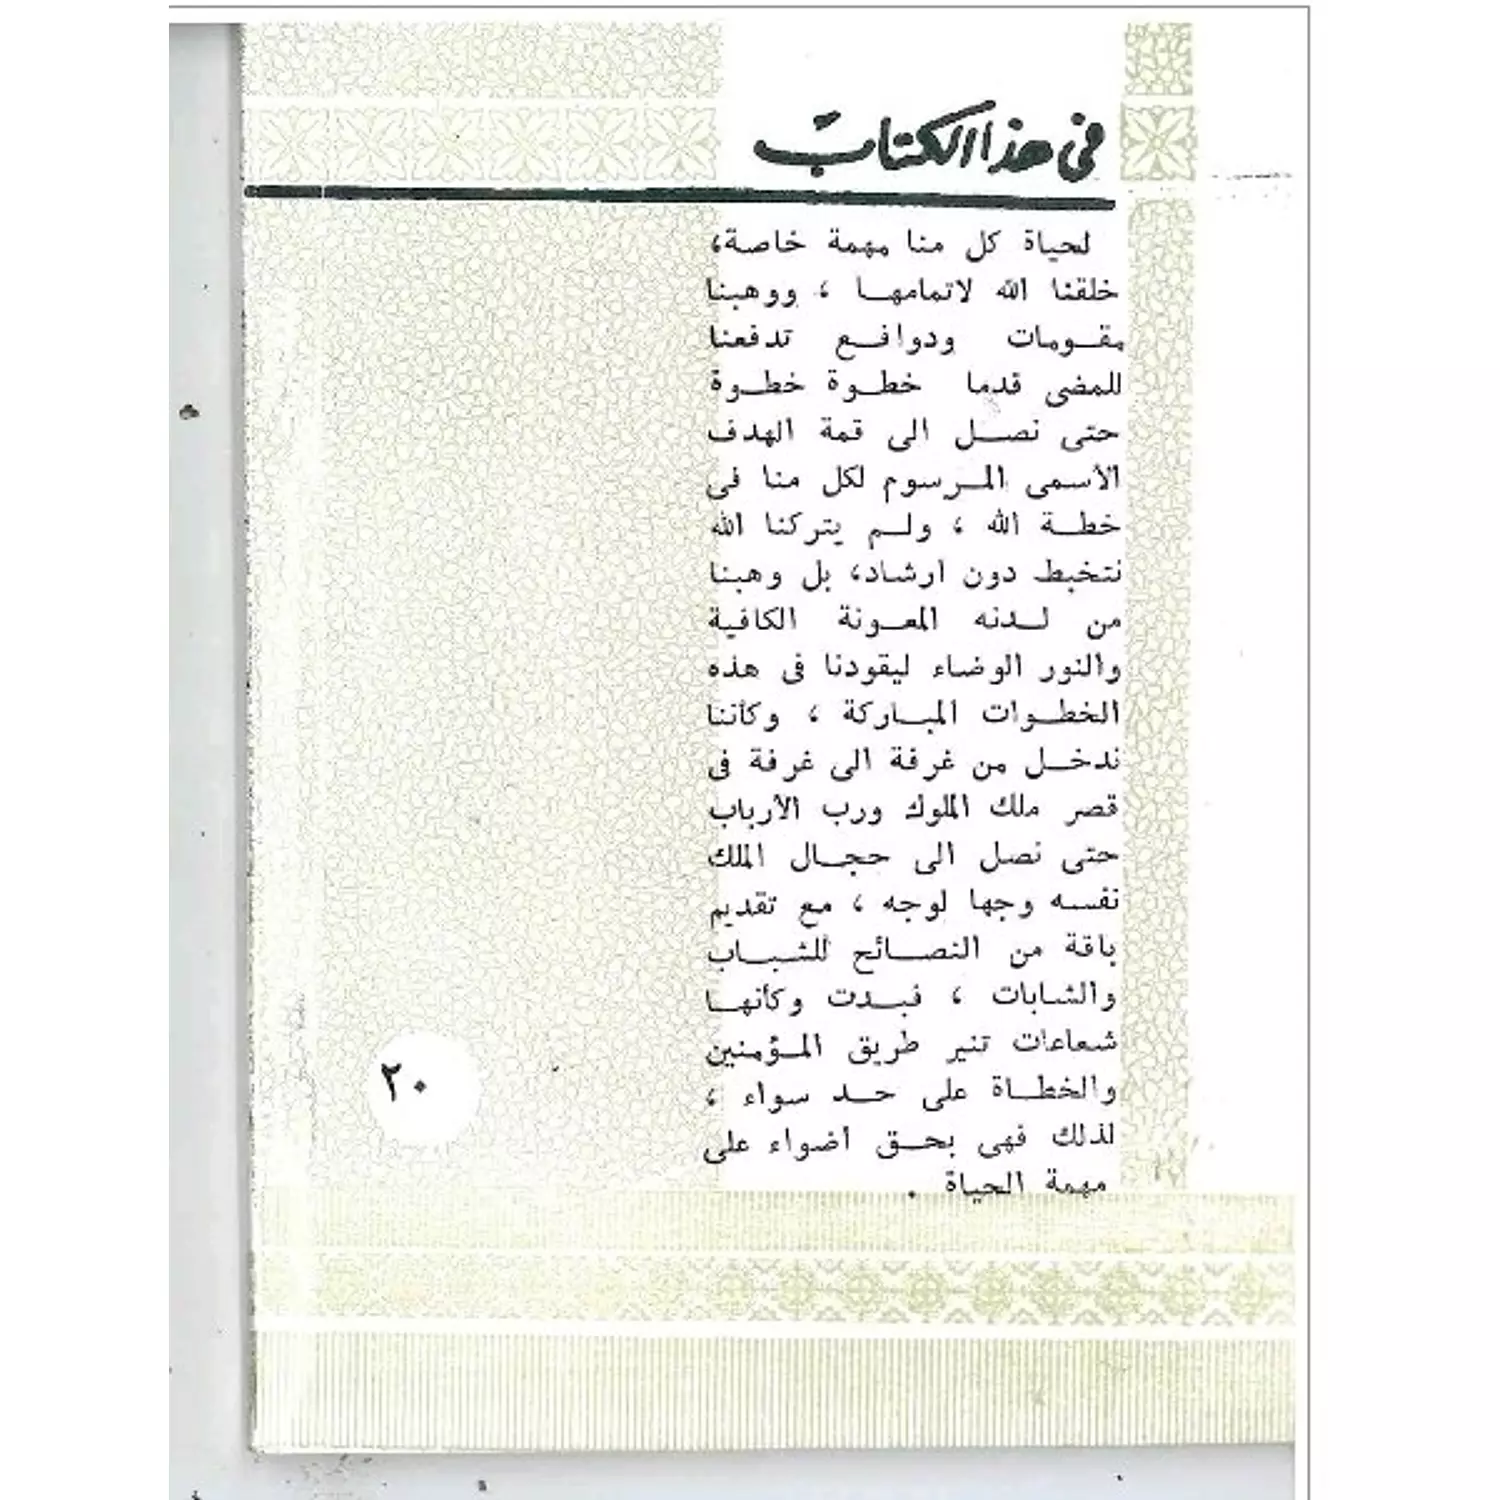 فى هذا الكتاب
لحياة كل منا مهمة خاصة،
خلقنا الله لاتمامهـا ، ووهبنا
مقـومات ودوافـع تدفعنا
للمضى قدما خطـوة خطـوة
حتى نصـل الى قمة الهدف
الأسمى المـرسوم لكل منا فى
خطـة الله ، ولـم يتركنا الله
نتخبط دون ارشاد، بل وهبنا
من لـدنه المعـونة الكافية
والنور الوضاء ليقودنا فى هذه
الخطـوات المبـاركة ، وكأننا
ندخـل من غرفة الى غرفة فى
قصر ملك الملوك ورب الأرباب
حتى نصل الى حجـال الملك
نفسه وجها لوجه ، مع تقديم
باقة من النصـائح للشبـاب
والشابات ، فبـدت وكأنهـا
شعاعات تنير طريق المـؤمنين
والخطـاة على حـد سواء ،
لذلك فهى بحـق أضواء على
مهمة الحياة .
٢٠